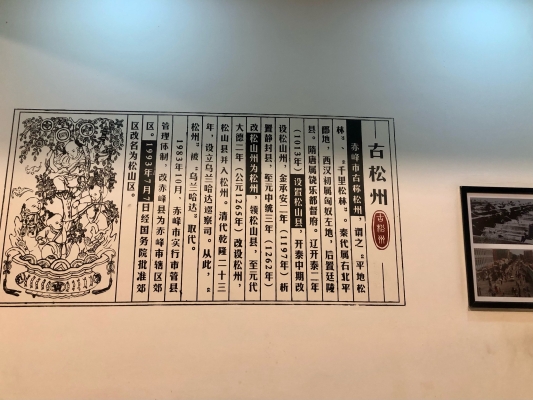 古松州
古松州
赤峰市古称松州，谓之“平地松
林”、“千里松林”。秦代属右北平
郡地，西汉初属匈奴左地，后置廷陵
县。隋唐属饶乐都督府。辽开泰二年
（1013年）设置松山县，开泰中期改
设松山州。金承安二年（1197年）析
置静封县，至元中统三年（1262年）
改松山州为松州，领松山县，至元代
大德二年（公元1265年）改设松州，
松山县并入松州。清代乾隆二十三
年，设立乌兰哈达巡察司。从此，“
松州”被“乌兰哈达”取代。
1983年10月，赤峰市实行市管县
管理体制，改赤峰县为赤峰市辖区郊
区。1993年7月7日经国务院批准郊
区改名为松山区。